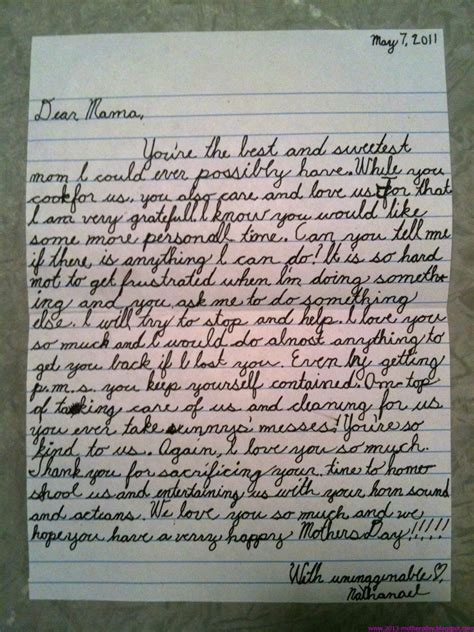 May 7, 2011
Dear Mama,
You're the best and sweetest
mom I could ever possibly have. While you
cook for us, you also care and love us. For that
I am very gratefull. I know you would like
some more personal time. Can you tell me
if there is anything I can do? It is so hard
not to get frustrated when I'm doing someth-
ing and you ask me to do something
else. I will try to stop and help. I love you
so much and I would do almost anything to
get you back if I lost you. Even by getting
p.m.s. you keep yourself contained. On top
of taking care of us and cleaning for us
you ever take messes! You're so
kind to us. Again, I love you so much.
Thank you for sacrificing your time to home
shool us and entertaining us with your horn sound
and actions. We love you so much and we
hope you have a verry happy Mothers Day!!!!!
With unimaginable ♡,
Nathanael
www.2013-mothersday.blogspot.com